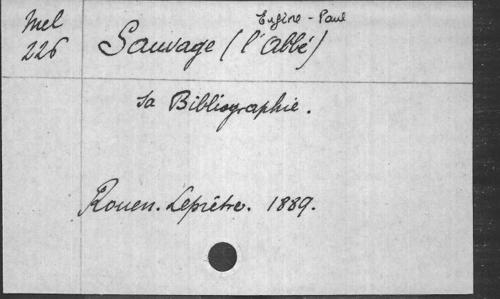 Mel
226
Eugène-Paul
Sauvage (l'abbé)
sa Bibliographie.
Rouen. Leprêtre. 1889.